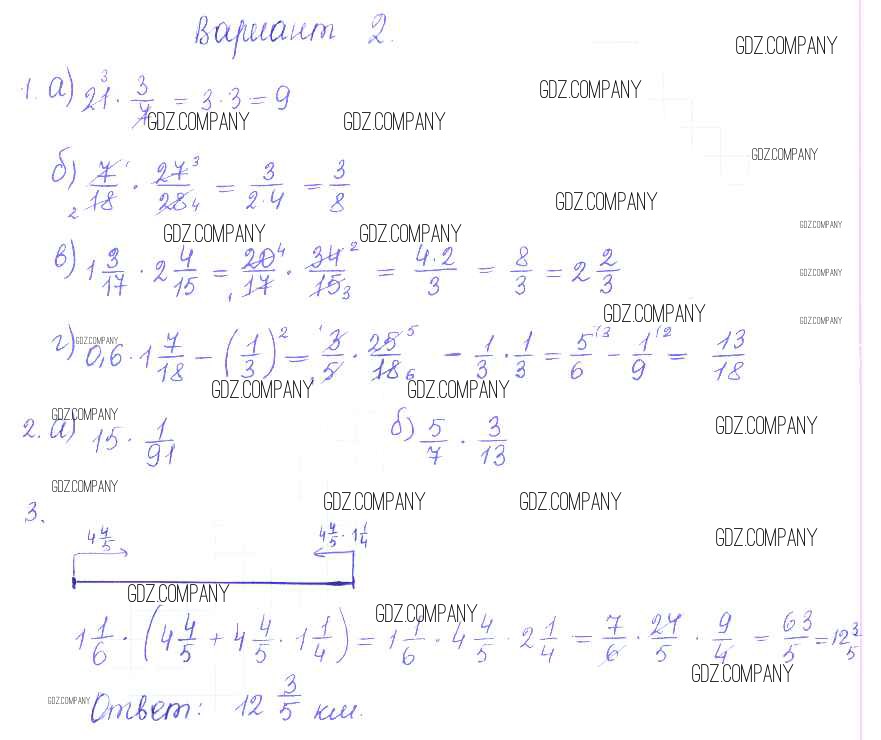 Вариант 2.
GDZ.COMPANY
1. а) 21³ · 3/7 = 3·3 = 9
GDZ.COMPANY
GDZ.COMPANY GDZ.COMPANY
GDZ.COMPANY
б) 7/18 · 27/28 = 3/2·4 = 3/8
GDZ.COMPANY
GDZ.COMPANY GDZ.COMPANY
GDZ.COMPANY
в) 1 3/17 · 2 4/15 = 20/17 · 34/15 = 4·2/3 = 8/3 = 2 2/3
GDZ.COMPANY
GDZ.COMPANY GDZ.COMPANY
GDZ.COMPANY
г) 0,6 · 1 7/18 − (1/3)² = 3/5 · 25/18 − 1/3 · 1/3 = 5/6 − 1/9 = 13/18
GDZ.COMPANY GDZ.COMPANY
GDZ.COMPANY
2. а) 15 · 1/91 б) 5/7 · 3/13
GDZ.COMPANY
GDZ.COMPANY
GDZ.COMPANY GDZ.COMPANY
3.
4 4/5 4 4/5 · 1 1/4
GDZ.COMPANY
GDZ.COMPANY
GDZ.COMPANY
1 1/6 · (4 4/5 + 4 4/5 · 1 1/4) = 1 1/6 · 4 4/5 · 2 1/4 = 7/6 · 24/5 · 9/4 = 63/5 = 12 3/5
GDZ.COMPANY
GDZ.COMPANY
Ответ: 12 3/5 км.